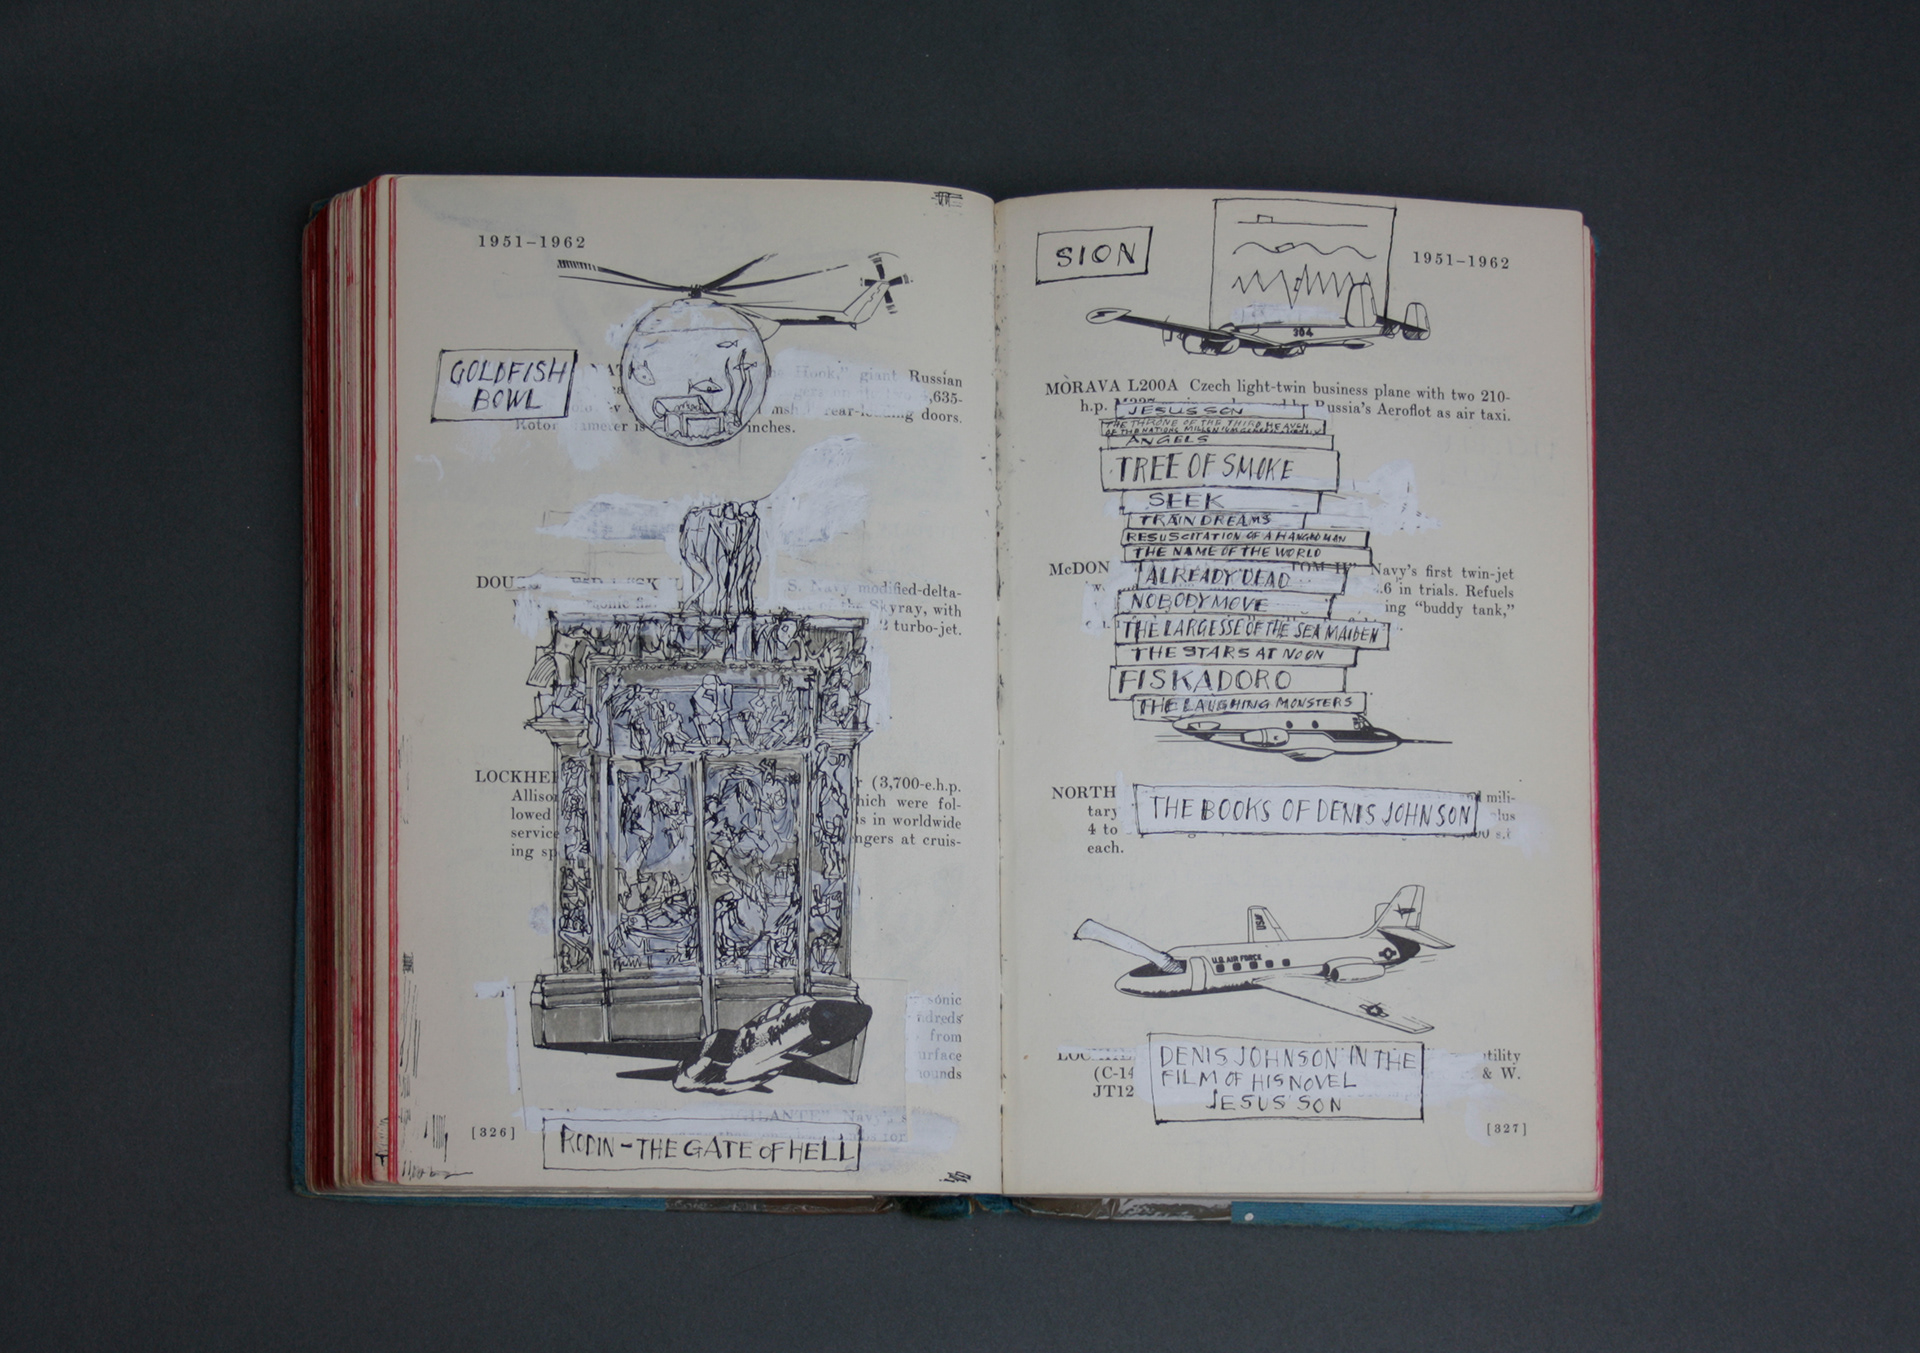 1951–1962
GOLDFISH
BOWL
Hook,” giant Russian
,635-
rear-loading doors.
Rotor diameter is inches.
S. Navy modified-delta-
of the Skyray, with
2 turbo-jet.
LOCKHE r (3,700-e.h.p.
Allison which were fol-
lowed is in worldwide
service ngers at cruis-
ing sp
sonic
ndreds
from
urface
ounds
VIGILANTE” Navy's
[326]
RODIN – THE GATE OF HELL
SION
1951–1962
304
MORAVA L200A Czech light-twin business plane with two 210-
h.p. Russia's Aeroflot as air taxi.
JESUS SON
THE THRONE OF THE THIRD HEAVEN
OF THE NATIONS MILLENIUM
ANGELS
TREE OF SMOKE
SEEK
TRAIN DREAMS
RESUSCITATION OF A HANGED MAN
THE NAME OF THE WORLD
McDON TOM II” Navy's first twin-jet
ALREADY DEAD .6 in trials. Refuels
NOBODY MOVE ing “buddy tank,”
THE LARGESSE OF THE SEA MAIDEN
THE STARS AT NOON
FISKADORO
THE LAUGHING MONSTERS
NORTH and mili-
tary plus
4 to
each.
THE BOOKS OF DENIS JOHNSON
U.S. AIR FORCE
utility
(C-14 & W.
JT12
DENIS JOHNSON IN THE
FILM OF HIS NOVEL
JESUS' SON
[327]